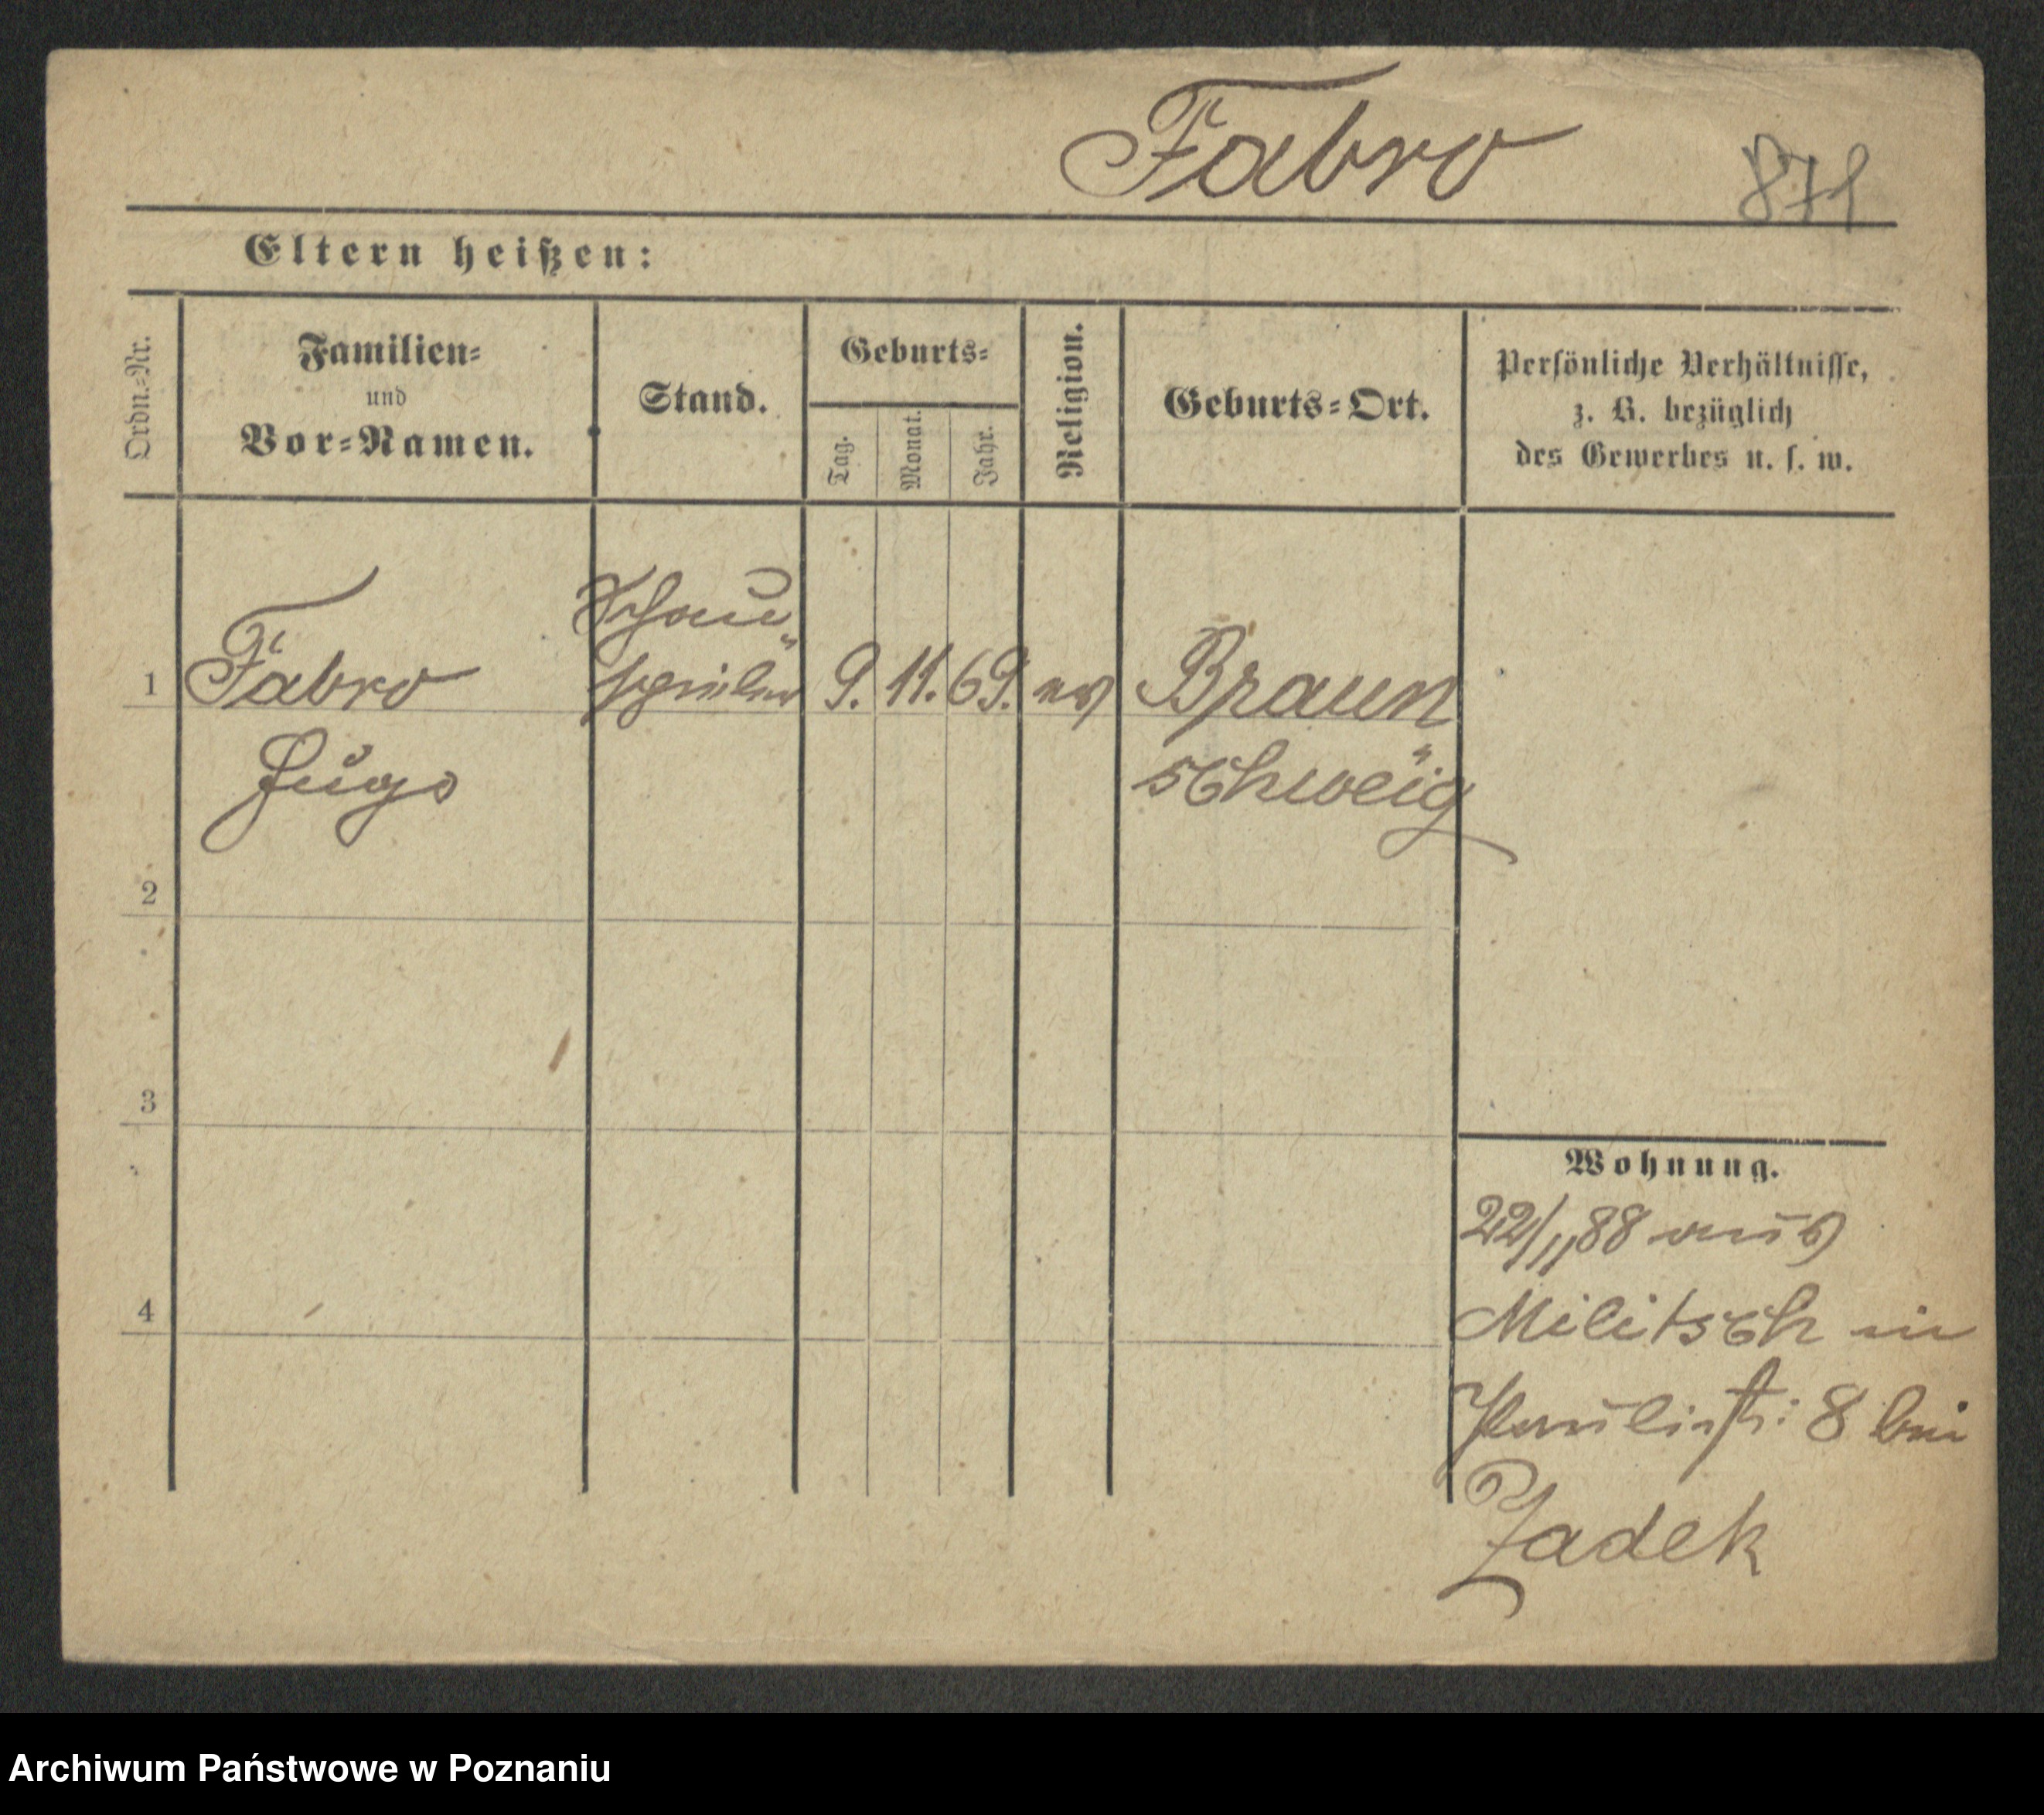 Fabro 871
Eltern heißen:
Ordn.=Nr.
Familien=
und
Vor=Namen.
Stand.
Geburts=
Tag.
Monat.
Jahr.
Religion.
Geburts=Ort.
Persönliche Verhältnisse,
z. B. bezüglich
des Gewerbes u. s. w.
1 Fabro Schau" spieler 9. 11. 69. ev Braun
Hugo schweig
2
3
4
Wohnung.
22/11 88 aus
Militsch in
Paulistr: 8 bei
Zadek
Archiwum Państwowe w Poznaniu